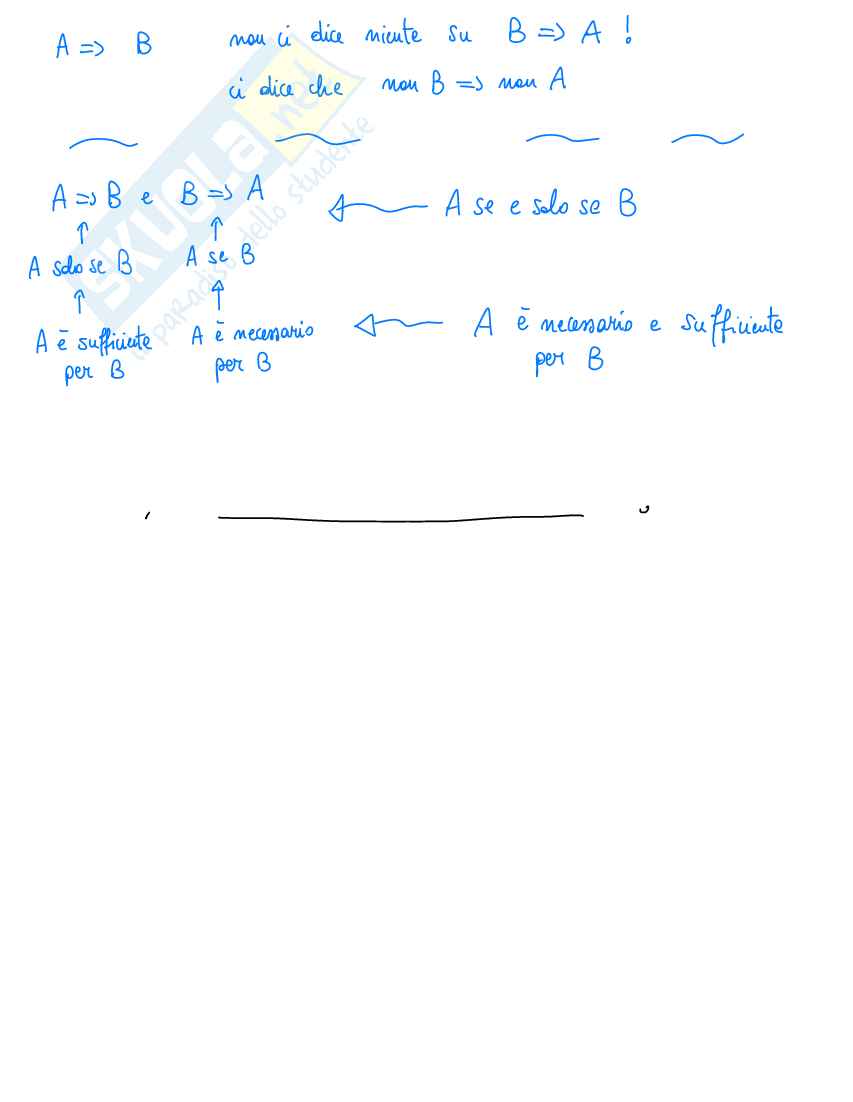 A => B non ci dice niente su B => A !
ci dice che non B => non A
A => B e B => A A se e solo se B
A solo se B A se B
A è sufficiente per B A è necessario per B A è necessario e sufficiente per B
SKUOLA.net
il paradiso dello studente